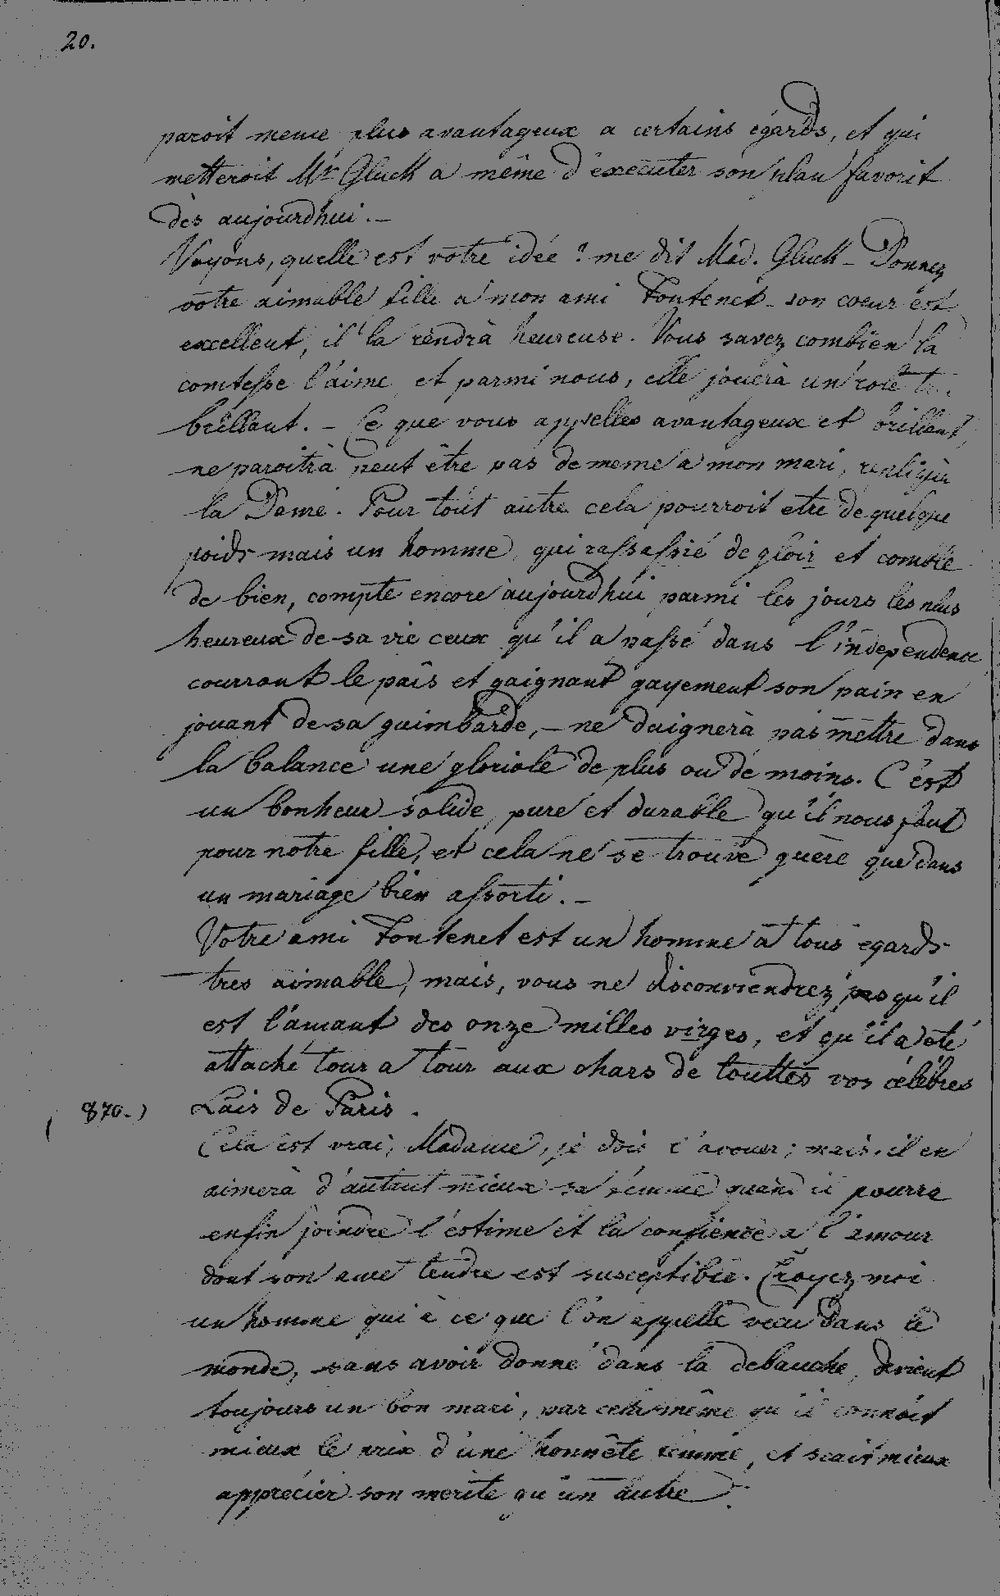 20.
paroit meme plus avantageux a certains égards, et qui
metteroit Mr Gluck a même d'exécuter son plan favorit
dès aujourdhui. —
Voyons, quelle est votre idée? me dit Mad. Gluck — Donnez
votre aimable fille a mon ami Fontenet — son coeur est
excellent, il la rendrà heureuse. Vous savez combien la
comtesse l'aime et parmi nous, elle jouerà un role
brillant. — Ce que vous appelles avantageux et brillant,
ne paroitrà peut être pas de meme a mon mari, repliqua
la Dame. Pour tout autre cela pourroit etre de quelque
poids mais un homme, qui rassassié de gloire et comblé
de bien, compte encore aujourdhui parmi les jours les plus
heureux de sa vie ceux qu'il a passé dans l'independence
courrant le païs et gaignant gayement son pain en
jouant de sa guimbarde, — ne daignerà pas mettre dans
la balance une gloriole de plus ou de moins. C'est
un bonheur solide, pure et durable qu'il nous faut
pour notre fille, et cela ne se trouve guère que dans
un mariage bien assorti. —
Votre ami Fontenet est un homme a tous egards
tres aimable, mais, vous ne disconviendrez pas qu'il
est l'amant des onze milles virges, et qu'il a eté
attaché tour a tour aux chars de touttes vos célébres
(870.) Laïs de Paris.
Cela est vrai, Madame, je dois l'avouer; mais, il en
aimerà d'autant mieux sa femme quand il pourra
enfin joindre l'éstime et la confience a l'amour
dont son ame tendre est susceptible. Croyez moi
un homme qui à ce que l'on appelle vecu dans le
monde, sans avoir donné dans la debauche, devient
toujours un bon mari, par cela même qu'il connoit
mieux le prix d'une honnête femme, et scait mieux
apprécier son merite qu'un autre.